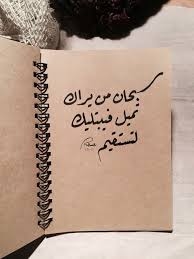 سبحان من يراك
تميل فيبتليك
لتستقيم